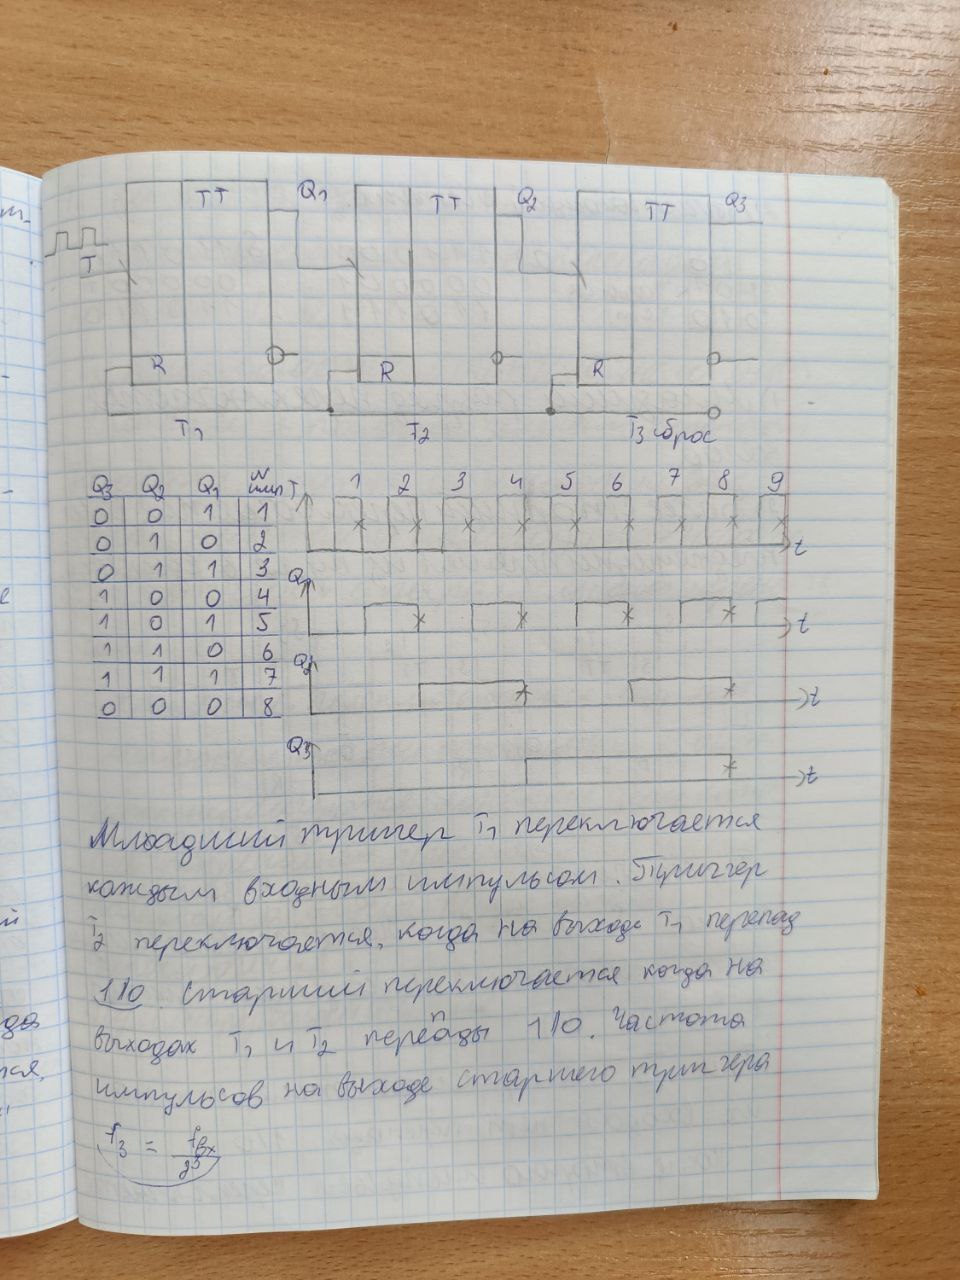 TT Q1 TT Q2 TT Q3
T
R R R
T1 T2 T3 сброс
Q3 Q2 Q1 N имп
0 0 1 1
0 1 0 2
0 1 1 3
1 0 0 4
1 0 1 5
1 1 0 6
1 1 1 7
0 0 0 8
T 1 2 3 4 5 6 7 8 9
t
Q1 t
Q2 t
Q3 t
Младший тригер T1 переключается
каждым входным импульсом. Триггер
T2 переключается, когда на выходе T1 перепад
1/0 Старший переключается когда на
выходах T1 и T2 перепады 1/0. Частота
импульсов на выходе старшего тригера
f3 = fвх / 2³